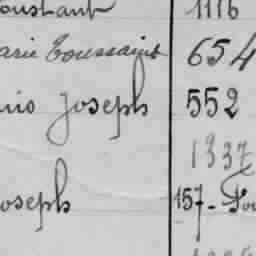 Constant 1116
Marie Toussaint 654
Joseph 552
1337
Joseph 157 -